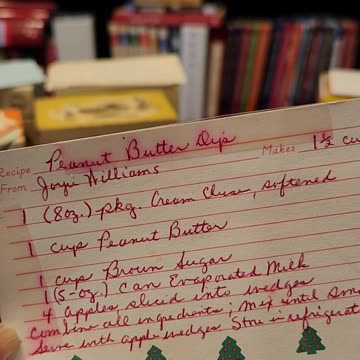 Recipe Peanut Butter Dip
From Joye Williams Makes 1½ cu
1 (8oz.) pkg. Cream Cheese, softened
1 cup Peanut Butter
1 cup Brown Sugar
1 (5-oz.) can Evaporated Milk
4 apples, sliced into wedges
Combine all ingredients; mix until smo
Serve with apple wedges. Store in refrigerat